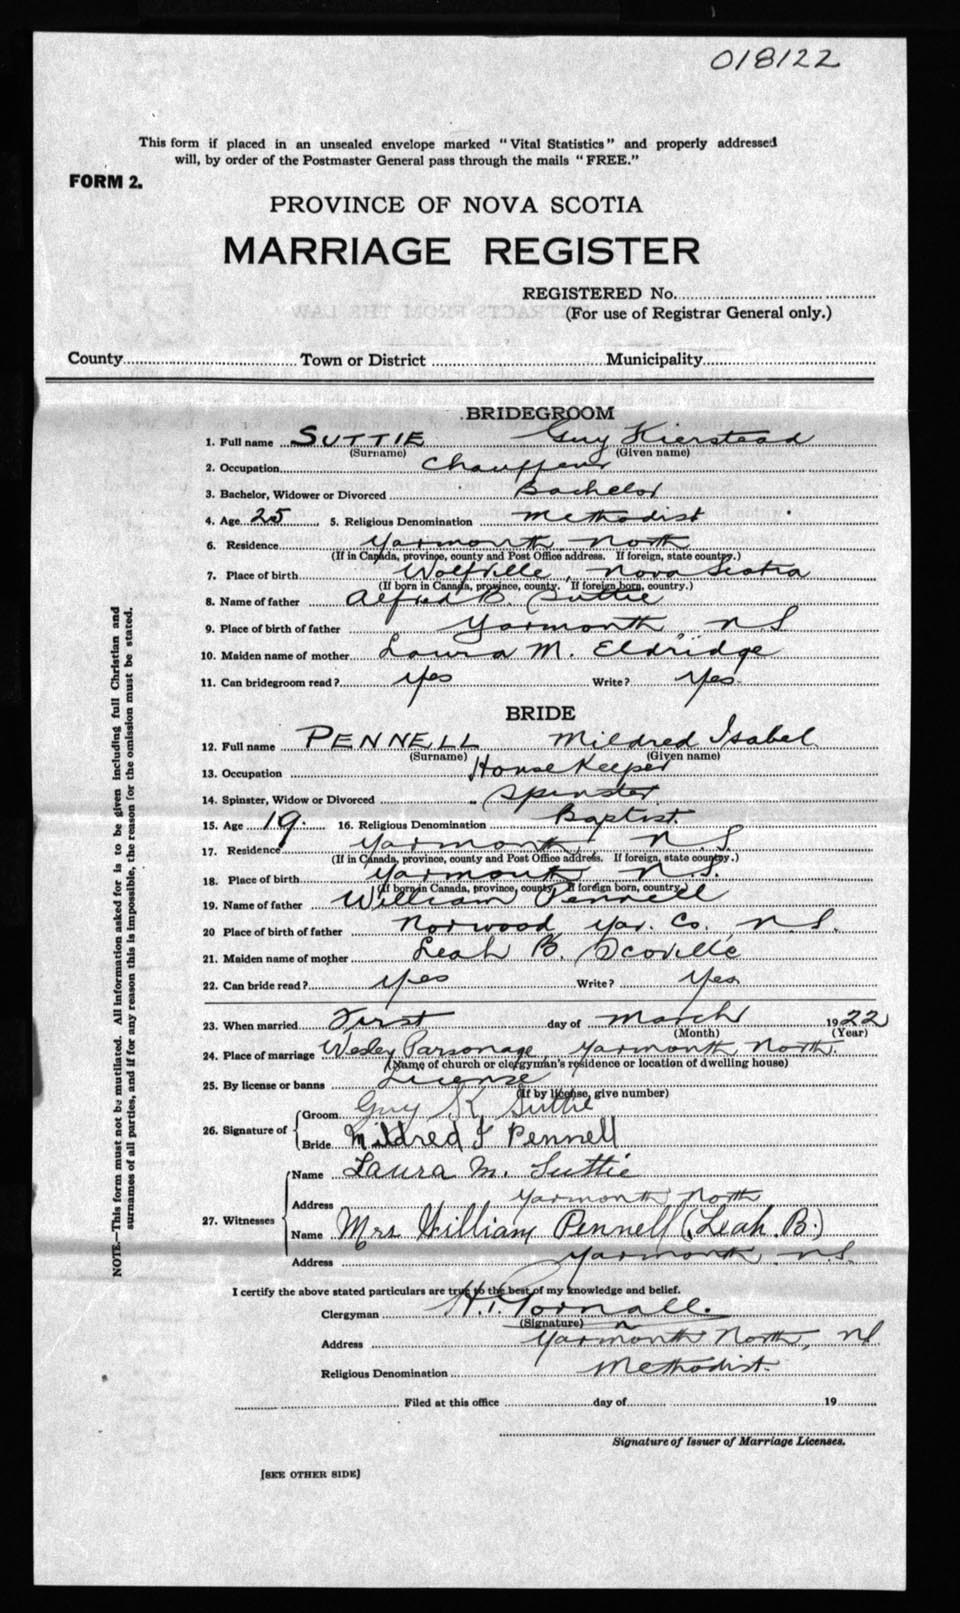 018122
This form if placed in an unsealed envelope marked "Vital Statistics" and properly addressed
will, by order of the Postmaster General pass through the mails "FREE."
FORM 2.
PROVINCE OF NOVA SCOTIA
MARRIAGE REGISTER
REGISTERED No.
(For use of Registrar General only.)
County Town or District Municipality
BRIDEGROOM
1. Full name SUTTIE Guy Kierstead
(Surname) (Given name)
2. Occupation Chauffeur
3. Bachelor, Widower or Divorced Bachelor
4. Age 25 5. Religious Denomination Methodist
6. Residence Yarmouth North
(If in Canada, province, county and Post Office address. If foreign, state country.)
7. Place of birth Wolfville, Nova Scotia
(If born in Canada, province, county. If foreign born, country.)
8. Name of father Alfred B. Suttie
9. Place of birth of father Yarmouth, N S
10. Maiden name of mother Laura M. Eldridge
11. Can bridegroom read? Yes Write? Yes
BRIDE
12. Full name PENNELL Mildred Isabel
(Surname) (Given name)
13. Occupation House Keeper
14. Spinster, Widow or Divorced Spinster
15. Age 19. 16. Religious Denomination Baptist.
17. Residence Yarmouth, N.S.
(If in Canada, province, county and Post Office address. If foreign, state country.)
18. Place of birth Yarmouth N.S.
(If born in Canada, province, county. If foreign born, country.)
19. Name of father William Pennell
20 Place of birth of father Norwood Yar. Co. N.S.
21. Maiden name of mother Leah B. Scoville
22. Can bride read? Yes Write? Yes
23. When married First day of March 1922
(Month) (Year)
24. Place of marriage Wesley Parsonage Yarmouth North.
(Name of church or clergyman's residence or location of dwelling house)
25. By license or banns License
(If by license, give number)
26. Signature of Groom Guy K. Suttie
Bride Mildred I Pennell
27. Witnesses Name Laura M. Suttie
Address Yarmouth North
Name Mrs William Pennell (Leah B.)
Address Yarmouth N.S.
I certify the above stated particulars are true to the best of my knowledge and belief.
Clergyman H.T.
(Signature)
Address Yarmouth North, NS
Religious Denomination Methodist.
Filed at this office day of 19
Signature of Issuer of Marriage Licenses.
[SEE OTHER SIDE]
NOTE.—This form must not be mutilated. All information asked for is to be given including full Christian and
surnames of all parties, and if for any reason this is impossible, the reason for the omission must be stated.